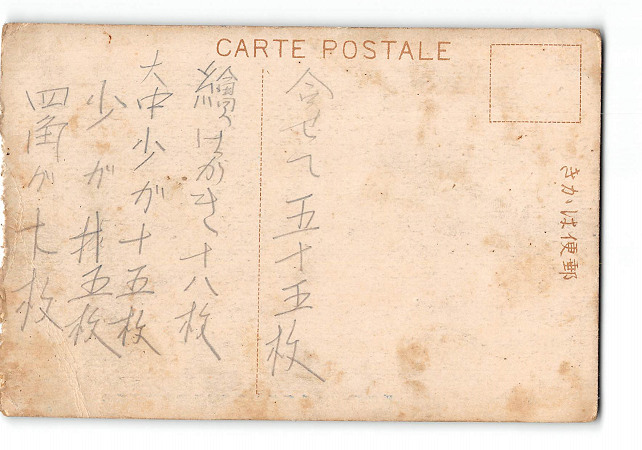 CARTE POSTALE
きかは便郵
合せて五十五枚
繪はがき十八枚
大中少が十五枚
少が五枚
四角が七枚